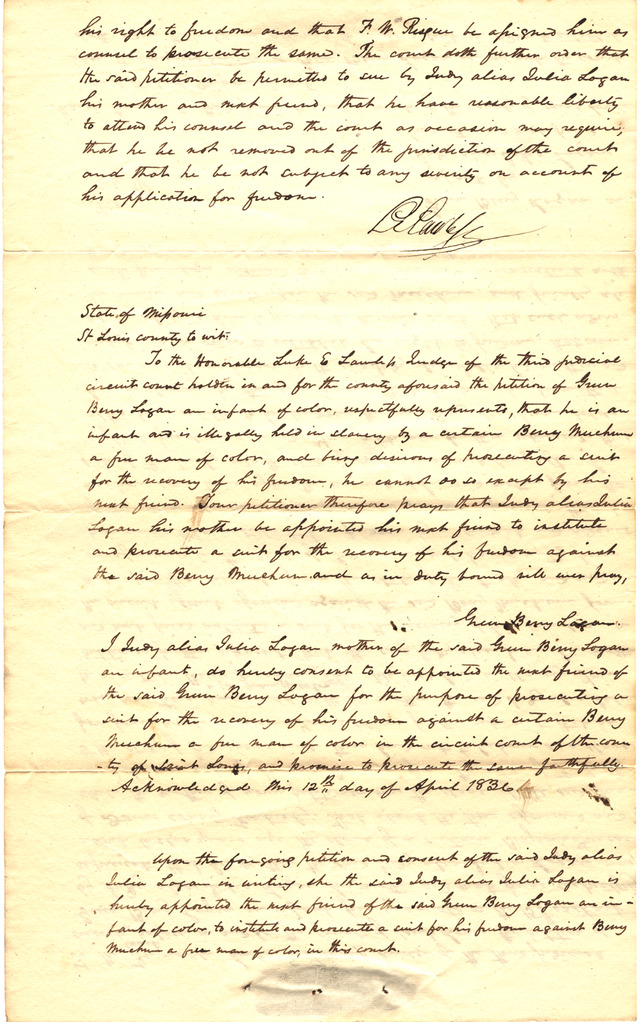 his right to freedom and that F. W. Risque be assigned him as
counsel to prosecute the same. The court doth further order that
the said petitioner be permitted to sue by Judy alias Julia Logan
his mother and next friend, that he have reasonable liberty
to attend his counsel and the court as occasion may require,
that he be not removed out of the jurisdiction of the court
and that he be not subject to any severity on account of
his application for freedom.
L E Lawless
State of Missouri
St Louis county to wit:
To the Honorable Luke E Lawless Judge of the third judicial
circuit court holden in and for the county aforesaid the petition of Green
Berry Logan an infant of color, respectfully represents, that he is an
infant and is illegally held in slavery by a certain Berry Meachum
a free man of color, and being desirous of prosecuting a suit
for the recovery of his freedom, he cannot do so except by his
next friend. Your petitioner therefore prays that Judy alias Julia
Logan his mother be appointed his next friend to institute
and prosecute a suit for the recovery of his freedom against
the said Berry Meachum and as in duty bound will ever pray,
Green Berry Logan.
I Judy alias Julia Logan mother of the said Green Berry Logan
an infant, do hereby consent to be appointed the next friend of
the said Green Berry Logan for the purpose of prosecuting a
suit for the recovery of his freedom against a certain Berry
Meachum a free man of color in the circuit court of the coun
-ty of Saint Louis, and promise to prosecute the same faithfully.
Acknowledged this 12th day of April 1836
Upon the foregoing petition and consent of the said Judy alias
Julia Logan in writing, she the said Judy alias Julia Logan is
hereby appointed the next friend of the said Green Berry Logan an in-
fant of color, to institute and prosecute a suit for his freedom against Berry
Meachum a free man of color, in this court.